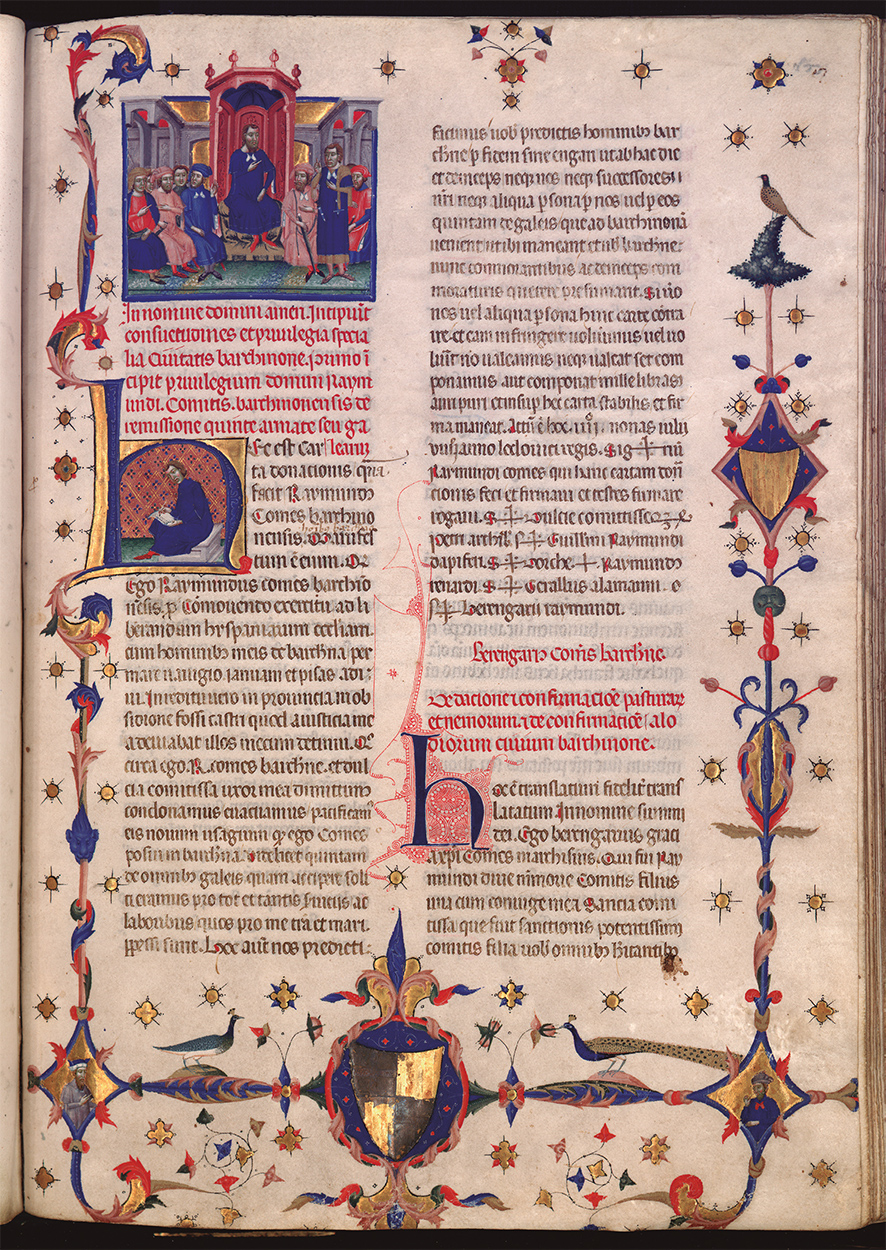 In nomine domini amen. Incipiūt
consuetudines et priuilegia specia
lia Ciuitatis barchinone. primo ī
cipit priuilegium domini Raym
undi. Comitis. barchinonensis de
remissione quinte armate seu ga
Hec est car learum
ta donacionis qm̄
facit Raymund9
Comes barchino
nensis. Manifes
tum
Ego Raymundus comes barchīo
nēsis. p Cōmouendo exercitu ad li
berandam hyspaniarum eccliam.
cum hominibus meis de barchna per
mare nauigio. ianuam et pisas adi
ui. In
sidione fossi castri quod
illos mecum detinui. Qr
circa ego .R. comes barchne. et dul
cia comitissa uxor mea dimittim9
condonamus euacuamus pacificam9
eis nouum usaticum qđ ego Comes
posui in barchna. videlicet quintam
de omnibus galeis quam accipere soli
ti eramus pro tot et tantis seruicijs ac
laboribus quos pro me terra et mari
ppessi sunt. hoc autē nos predicti
facimus uob predictis hominibus bar
chne p fidem sine engan ut ab hac die
et deinceps neqȝ nos neqȝ successores
nr̄i neqȝ aliqua psona p nos uel p eos
quintam de galeis que ad barchinonā
uenient ut ibi maneant et ab barchne
nunc commorantibus ac deinceps com
moraturis querere presumant. Si uo
nos uel aliqua psona hanc carte cōtra
ire et eam infringere uoluimus uel uo
luīt nō ualeamus neqȝ ualeat set com
ponamus aut componat mille libras
auri puri et insup hec carta stabilis et fir
ma maneat. Actū ē hoc .iiij. nonas iulij
regis. Sig+num
Raymundi comes qui hanc cartam don
cionis feci et firmaui et testes firmare
rogaui. S+ Dulcie comitisse
petri archiļ S+ Guillmi Raymundi
dapiferi. S+ Dorche. + Raymundi
renardi. S+ Geralli alamanni.
S+ Berengarii raymundi.
Berengari9 Comes barchne.
De dacione et confirmacione pasturar
et nemorum et de confirmacione alo
diorum ciuium barchinone.
Hoc est translatum fideliter trans
latatum In nomine summi
dei. Ego berengarius graci
a xpi Comes marchisius. Qui fui Ray
mundi diue memorie Comitis filius
una cum coniuge mea Sancia comi
tissa que fuit sanctionis potentissimi
comitis filia uob omnibus